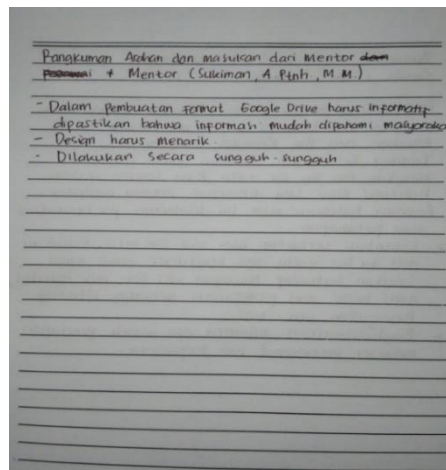 Rangkuman Arahan dan masukan dari Mentor
+ Mentor (Sukiman, A.Ptnh, M.M.)
- Dalam Pembuatan format Google Drive harus informatif
dipastikan bahwa informasi mudah dipahami masyarakat
- Design harus menarik.
- Dilakukan secara sungguh-sungguh